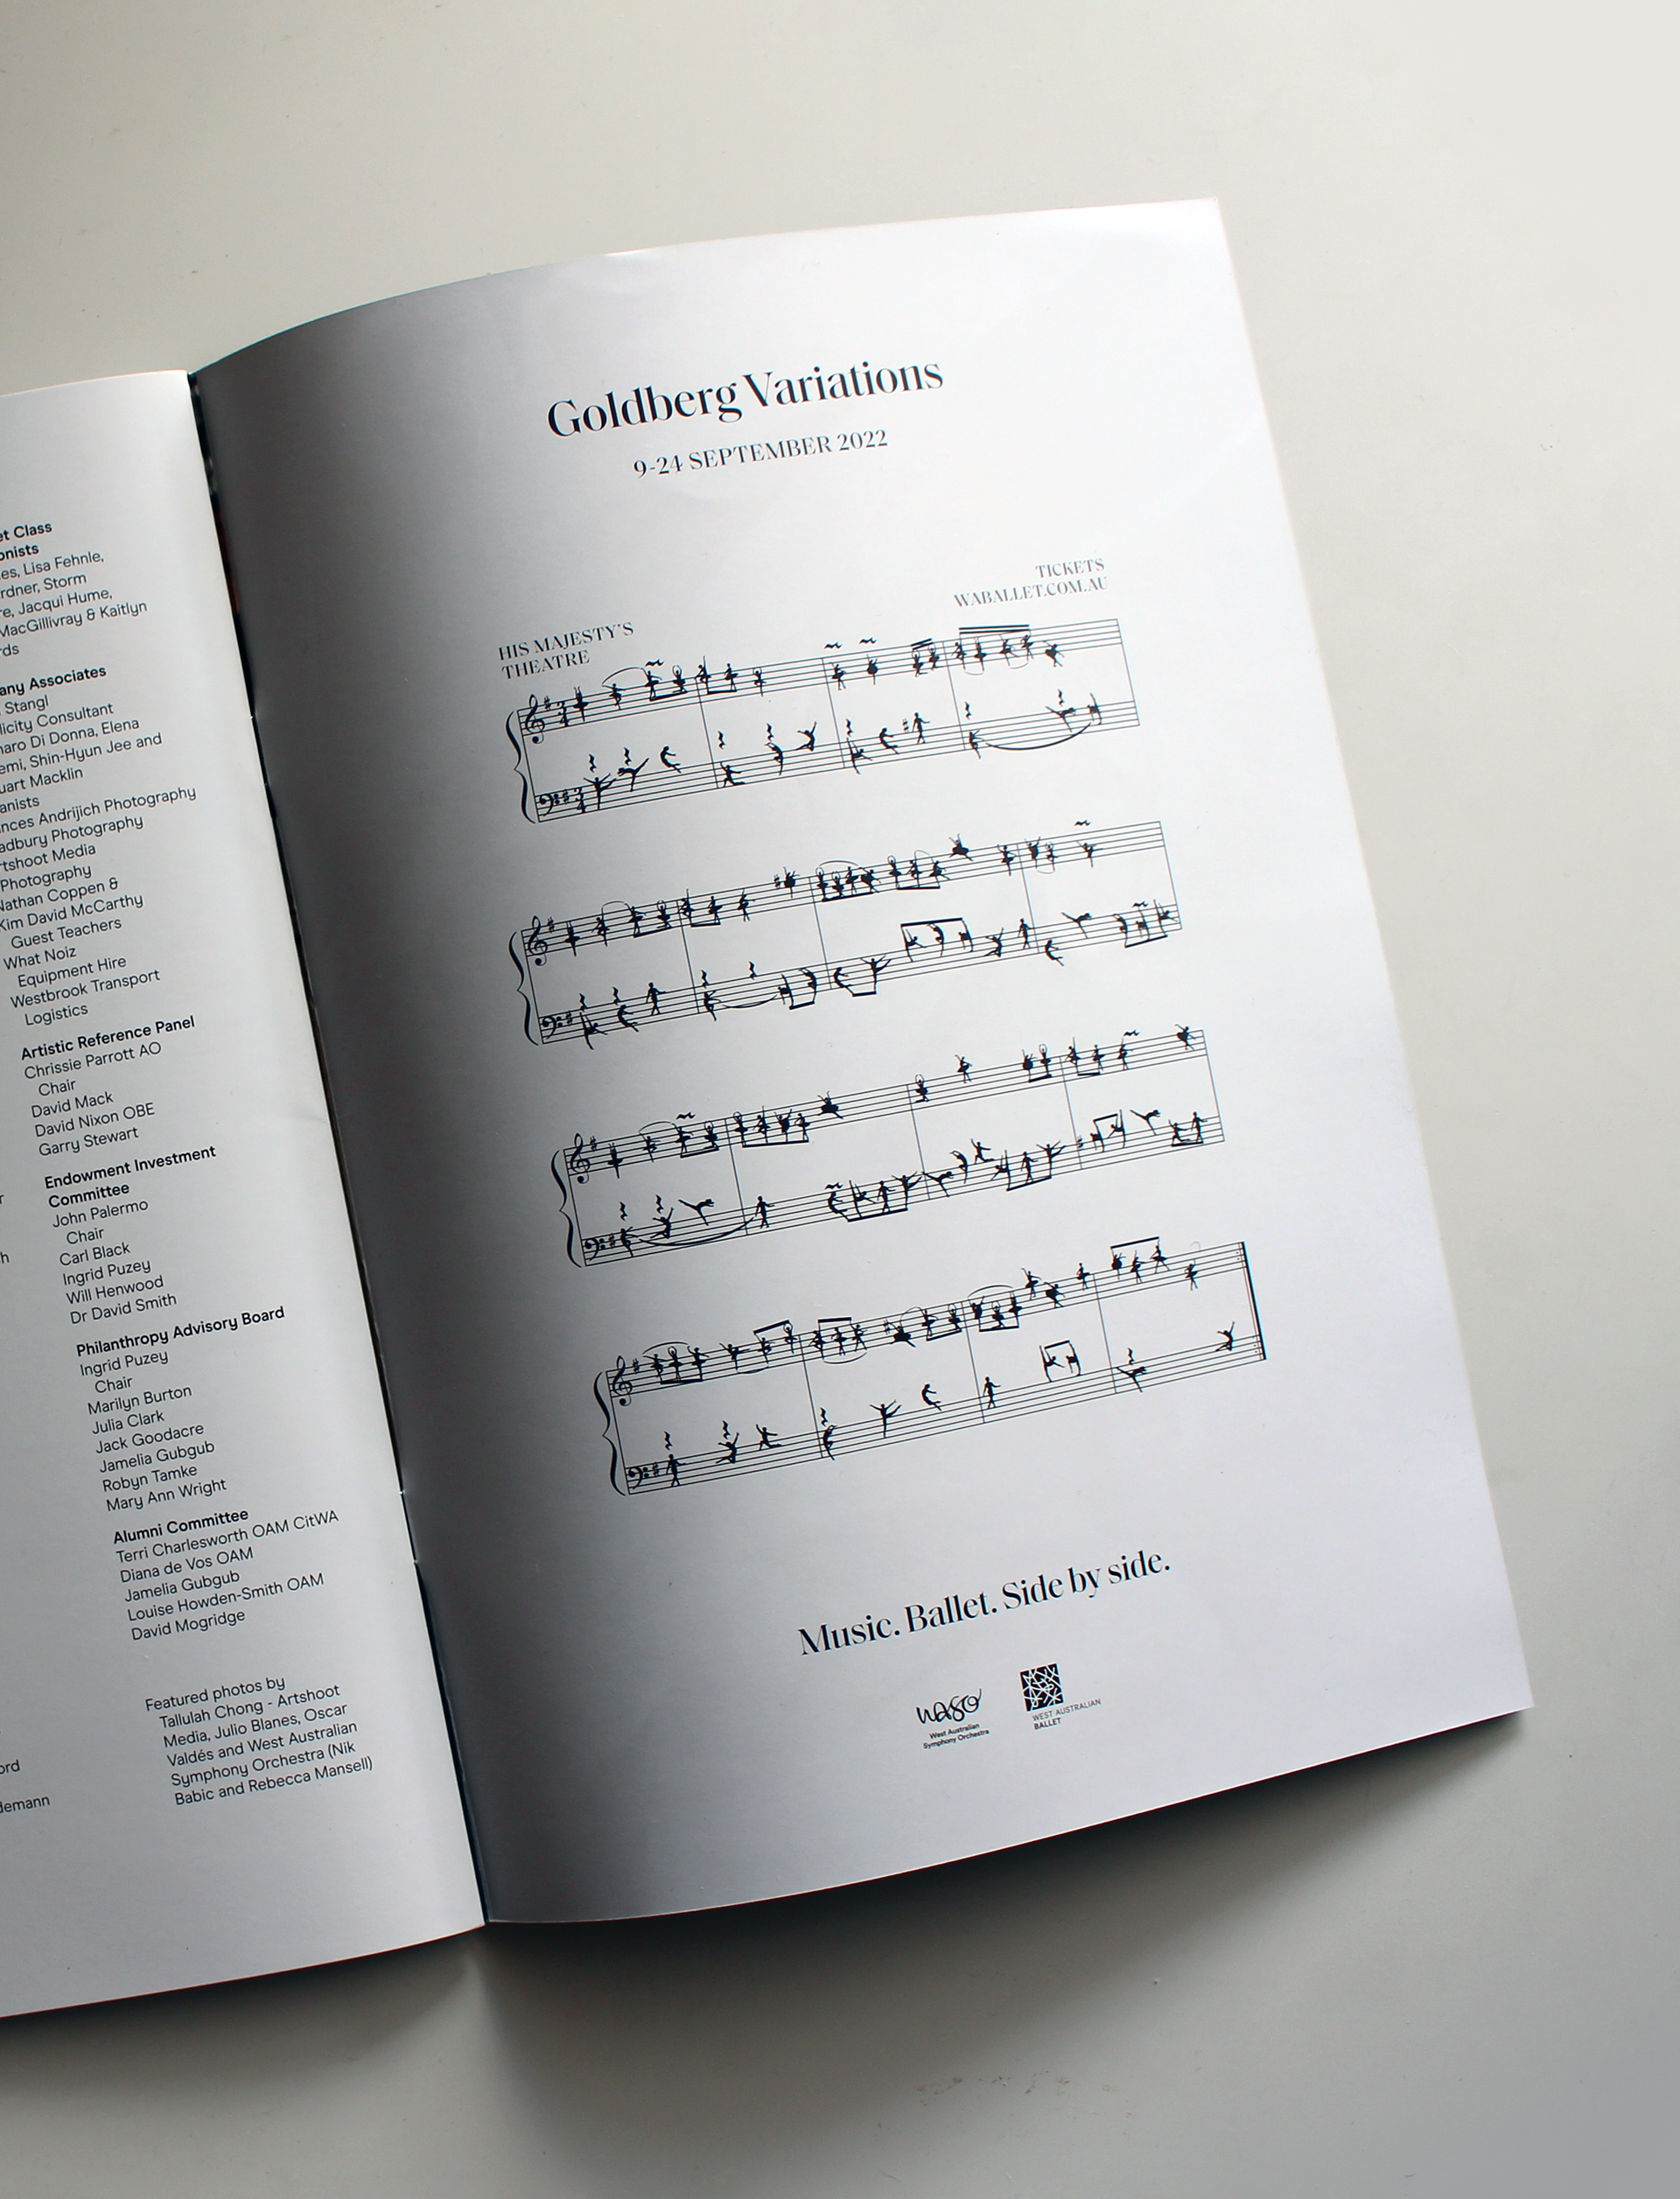 et Class
onists
es, Lisa Fehnle,
rdner, Storm
re, Jacqui Hume,
MacGillivray & Kaitlyn
rds
any Associates
Stangl
licity Consultant
naro Di Donna, Elena
emi, Shin-Hyun Jee and
uart Macklin
anists
nces Andrijich Photography
adbury Photography
rtshoot Media
Photography
Nathan Coppen &
Kim David McCarthy
Guest Teachers
What Noiz
Equipment Hire
Westbrook Transport
Logistics
Artistic Reference Panel
Chrissie Parrott AO
Chair
David Mack
David Nixon OBE
Garry Stewart
Endowment Investment
Committee
John Palermo
Chair
Carl Black
Ingrid Puzey
Will Henwood
Dr David Smith
Philanthropy Advisory Board
Ingrid Puzey
Chair
Marilyn Burton
Julia Clark
Jack Goodacre
Jamelia Gubgub
Robyn Tamke
Mary Ann Wright
Alumni Committee
Terri Charlesworth OAM CitWA
Diana de Vos OAM
Jamelia Gubgub
Louise Howden-Smith OAM
David Mogridge
Featured photos by
Tallulah Chong - Artshoot
Media, Julio Blanes, Oscar
Valdés and West Australian
Symphony Orchestra (Nik
Babic and Rebecca Mansell)
ord
demann
Goldberg Variations
9-24 SEPTEMBER 2022
TICKETS
WABALLET.COM.AU
HIS MAJESTY'S
THEATRE
Music. Ballet. Side by side.
waso
West Australian
Symphony Orchestra
WEST AUSTRALIAN
BALLET